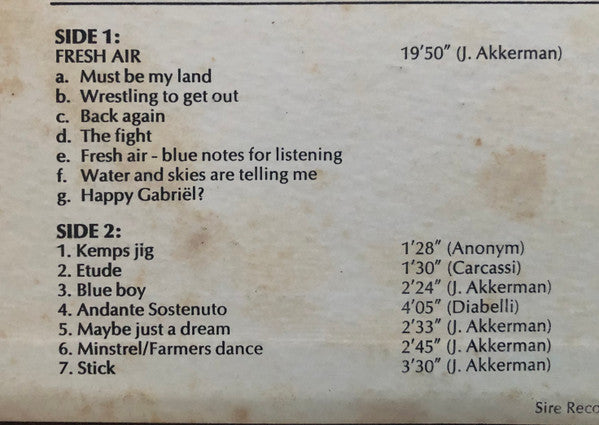 SIDE 1:
FRESH AIR 19'50" (J. Akkerman)
a. Must be my land
b. Wrestling to get out
c. Back again
d. The fight
e. Fresh air - blue notes for listening
f. Water and skies are telling me
g. Happy Gabriël?
SIDE 2:
1. Kemps jig 1'28" (Anonym)
2. Etude 1'30" (Carcassi)
3. Blue boy 2'24" (J. Akkerman)
4. Andante Sostenuto 4'05" (Diabelli)
5. Maybe just a dream 2'33" (J. Akkerman)
6. Minstrel/Farmers dance 2'45" (J. Akkerman)
7. Stick 3'30" (J. Akkerman)
Sire Reco